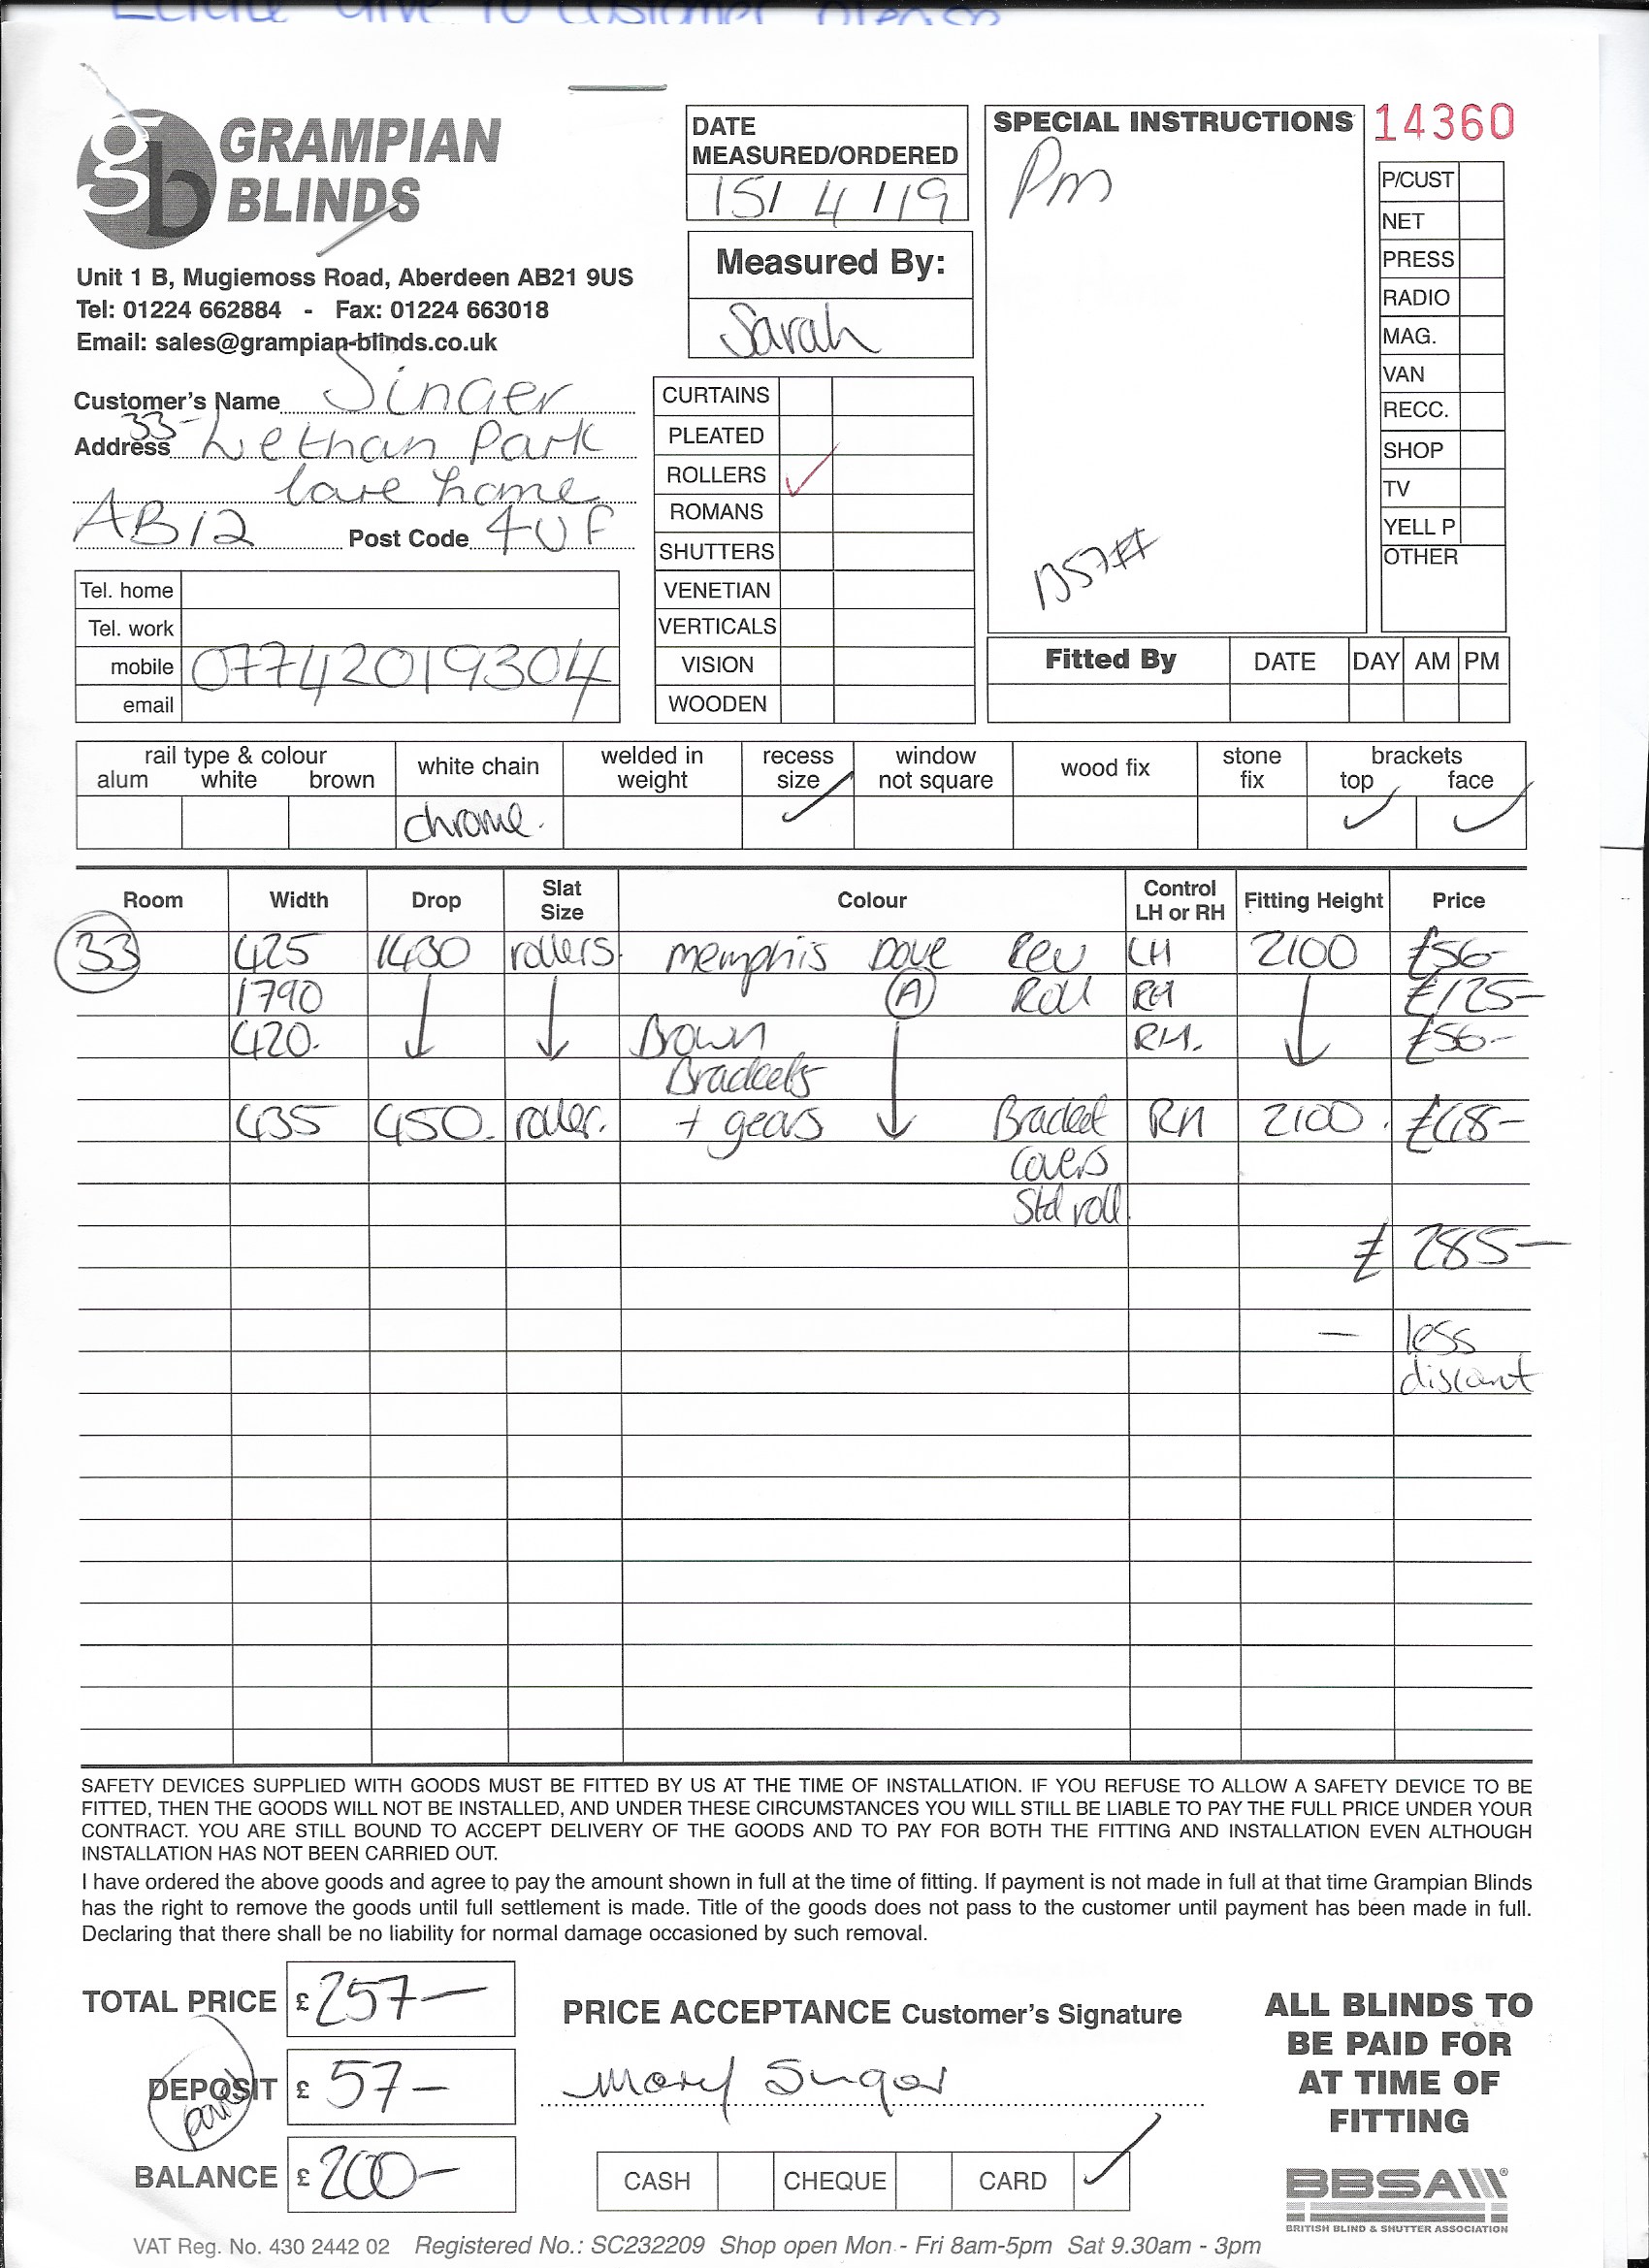 GRAMPIAN
BLINDS
Unit 1 B, Mugiemoss Road, Aberdeen AB21 9US
Tel: 01224 662884 - Fax: 01224 663018
Email: sales@grampian-blinds.co.uk
DATE
MEASURED/ORDERED
15/ 4/19
Measured By:
Sarah
SPECIAL INSTRUCTIONS
Pm
14360
P/CUST
NET
PRESS
RADIO
MAG.
VAN
RECC.
SHOP
TV
YELL P
OTHER
Customer's Name Singer
33- Address Lethan Park
Care home
AB12 Post Code 4UF
Tel. home
Tel. work
mobile 07742019304
email
CURTAINS
PLEATED
ROLLERS ✓
ROMANS
SHUTTERS
VENETIAN
VERTICALS
VISION
WOODEN
Fitted By DATE DAY AM PM
rail type & colour white chain welded in weight recess size window not square wood fix stone fix brackets
alum white brown top face
chrome. ✓ ✓ ✓
Room Width Drop Slat Size Colour Control LH or RH Fitting Height Price
33 425 1430 rollers memphis Dove Rev LH 2100 £56-
1790 A Roll RH £125-
420. Brown RH. £56-
Brackets
435 450. roller. + gears Bracket RH 2100. £48-
Covers
Std roll.
£ 285-
- less
discount
SAFETY DEVICES SUPPLIED WITH GOODS MUST BE FITTED BY US AT THE TIME OF INSTALLATION. IF YOU REFUSE TO ALLOW A SAFETY DEVICE TO BE
FITTED, THEN THE GOODS WILL NOT BE INSTALLED, AND UNDER THESE CIRCUMSTANCES YOU WILL STILL BE LIABLE TO PAY THE FULL PRICE UNDER YOUR
CONTRACT. YOU ARE STILL BOUND TO ACCEPT DELIVERY OF THE GOODS AND TO PAY FOR BOTH THE FITTING AND INSTALLATION EVEN ALTHOUGH
INSTALLATION HAS NOT BEEN CARRIED OUT.
I have ordered the above goods and agree to pay the amount shown in full at the time of fitting. If payment is not made in full at that time Grampian Blinds
has the right to remove the goods until full settlement is made. Title of the goods does not pass to the customer until payment has been made in full.
Declaring that there shall be no liability for normal damage occasioned by such removal.
TOTAL PRICE £ 257-
DEPOSIT £ 57-
paid
BALANCE £ 200-
PRICE ACCEPTANCE Customer's Signature
CASH CHEQUE CARD ✓
ALL BLINDS TO
BE PAID FOR
AT TIME OF
FITTING
BBSA
BRITISH BLIND & SHUTTER ASSOCIATION
VAT Reg. No. 430 2442 02 Registered No.: SC232209 Shop open Mon - Fri 8am-5pm Sat 9.30am - 3pm